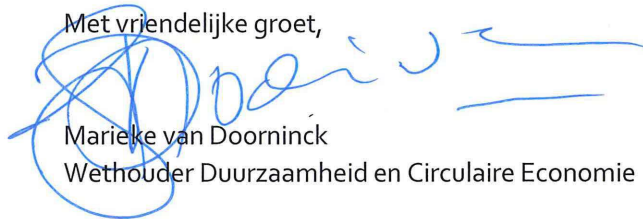 Met vriendelijke groet,
Marieke van Doorninck
Wethouder Duurzaamheid en Circulaire Economie